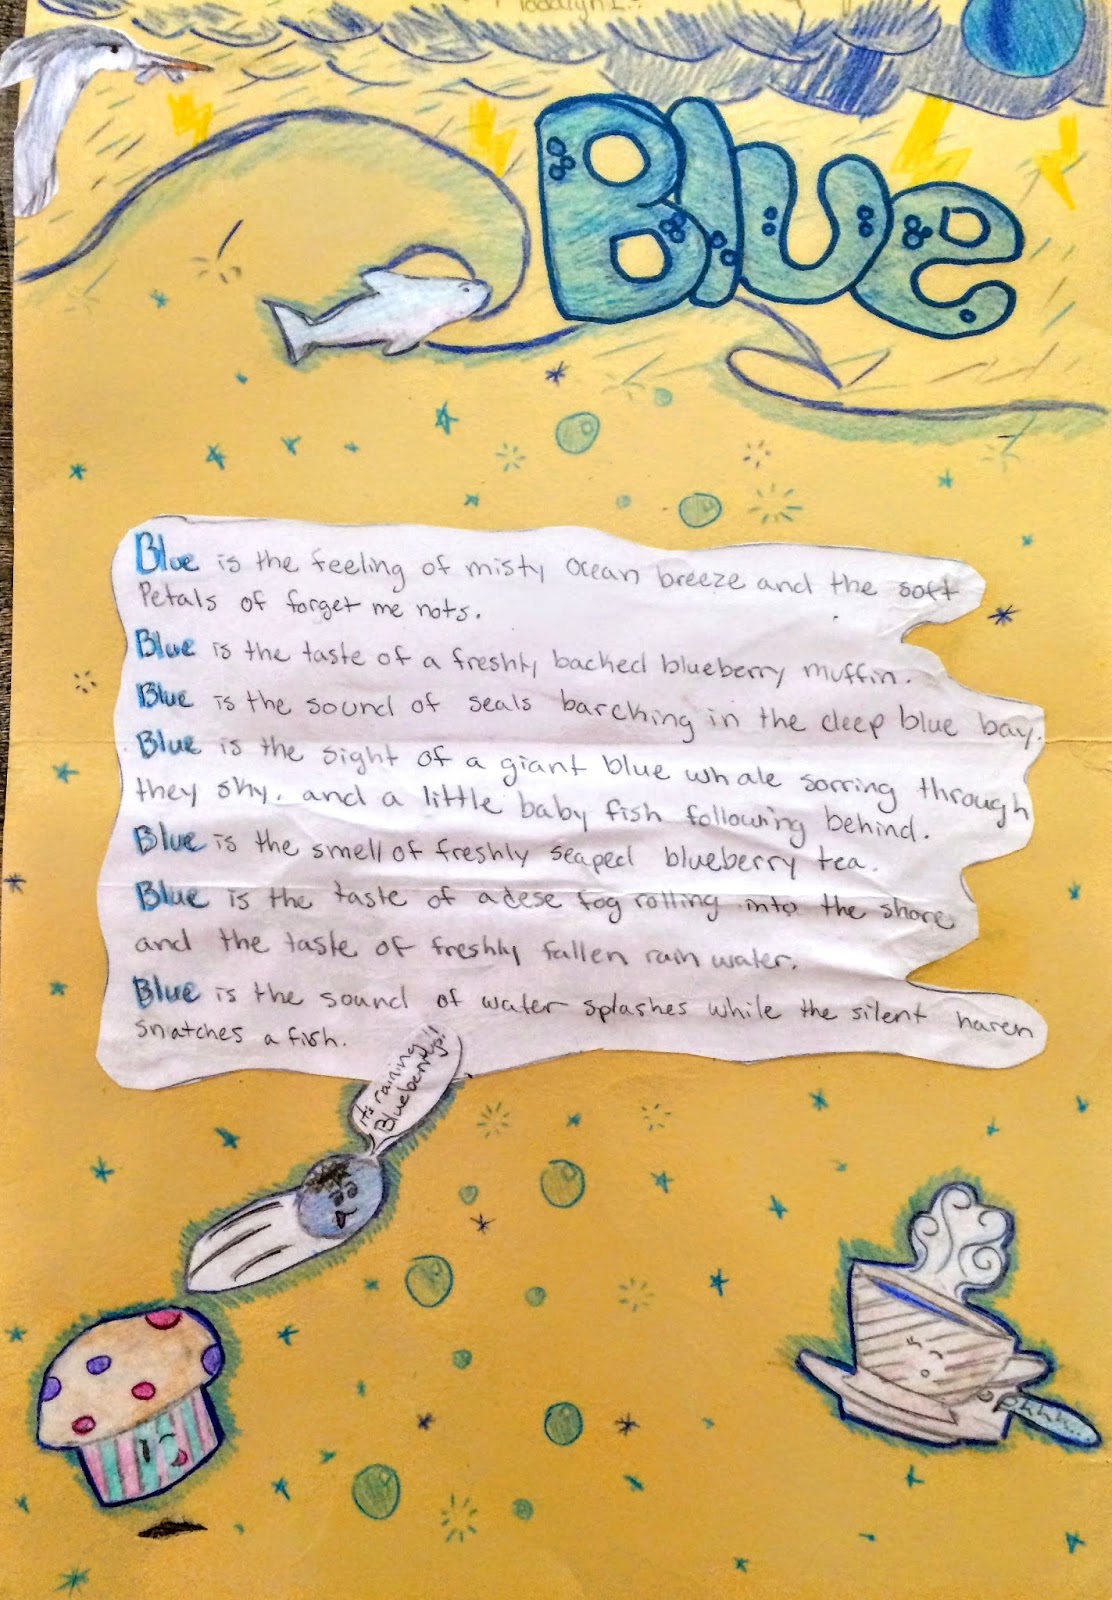 Blue
Blue is the feeling of misty ocean breeze and the soft
Petals of forget me nots.
Blue is the taste of a freshly backed blueberry muffin.
Blue is the sound of seals barcking in the deep blue bay.
Blue is the sight of a giant blue whale sorring through
they sky. and a little baby fish following behind.
Blue is the smell of freshly seaped blueberry tea.
Blue is the taste of a dese fog rolling into the shore
and the taste of freshly fallen rain water.
Blue is the sound of water splashes while the silent haren
snatches a fish.
it's raining
Blueberrys!